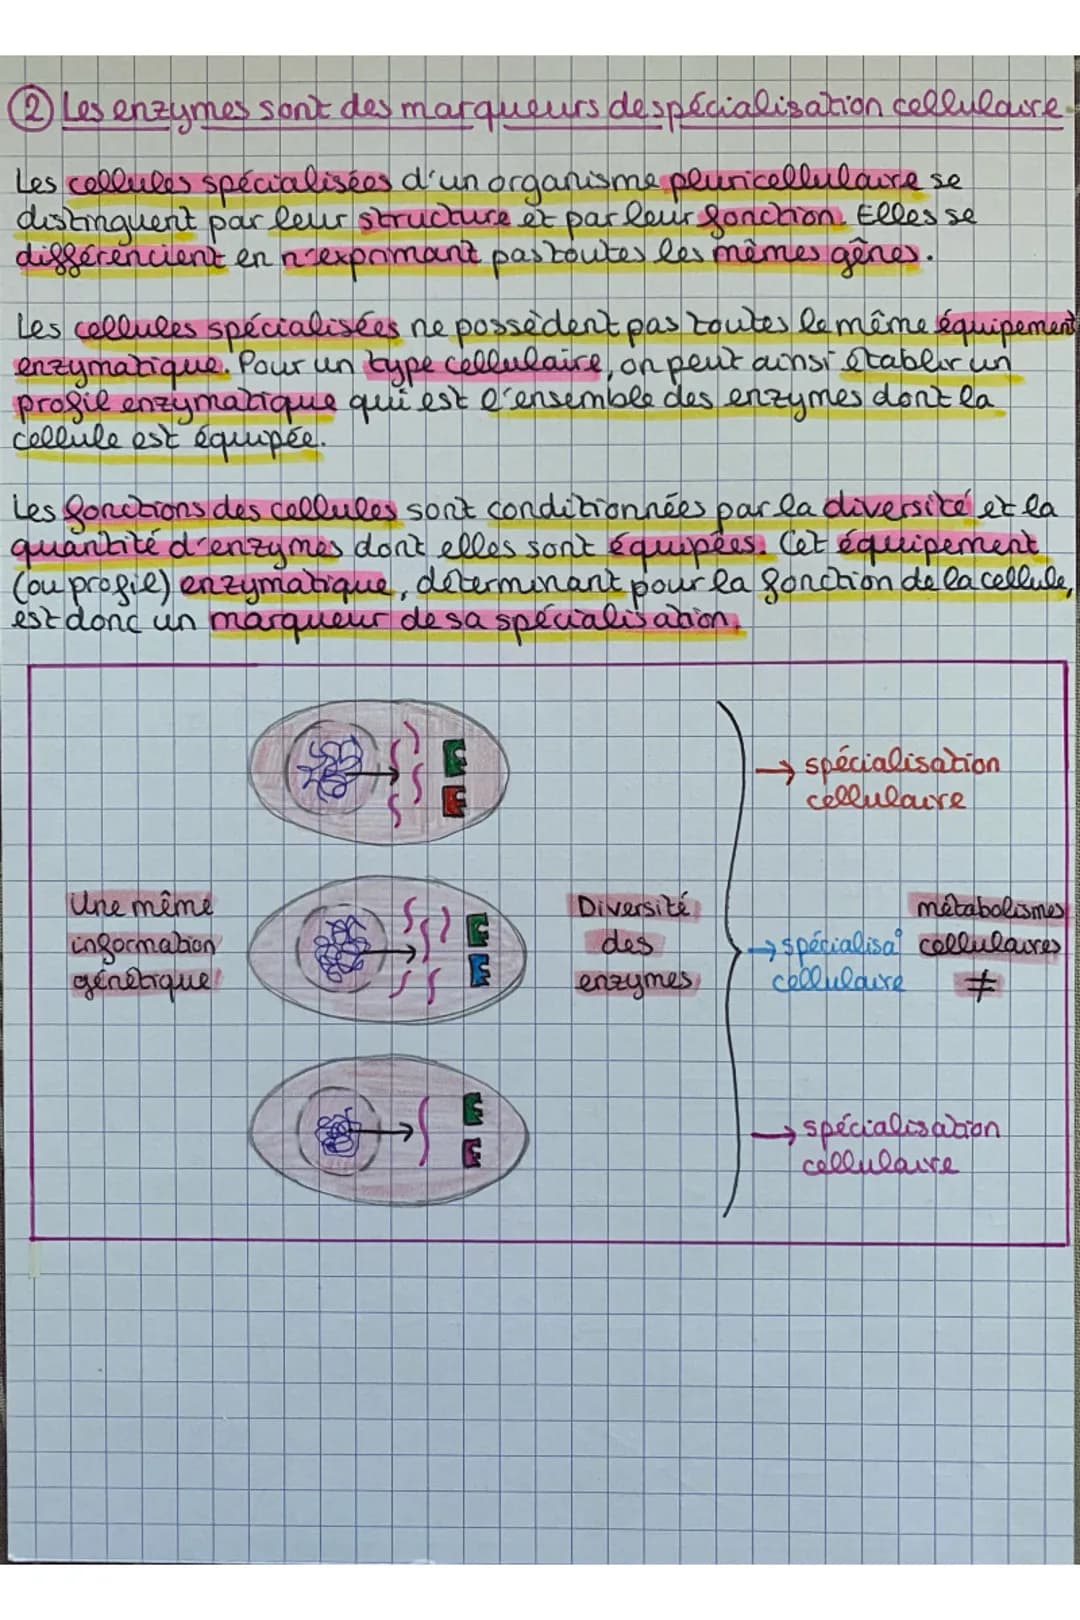 ② Les enzymes sont des marqueurs de spécialisation cellulaire.
Les cellules spécialisées d'un organisme pluricellulaire se
distinguent par leur structure et par leur fonction. Elles se
différencient en n'exprimant pas toutes les mêmes gênes.
Les cellules spécialisées ne possèdent pas toutes le même équipement
enzymatique. Pour un type cellulaire, on peut ainsi établir un
profil enzymatique qui est l'ensemble des enzymes dont la
cellule est équipée.
Les fonctions des cellules sont conditionnées par la diversité et la
quantité d'enzymes dont elles sont équipées. Cet équipement
(ou profil) enzymatique, déterminant pour la fonction de la cellule,
est donc un marqueur de sa spécialisation.
→ spécialisation
cellulaire
Une même
information
génétique
Diversité
des
enzymes
→ spécialisa°
cellulaire
métabolismes
cellulaires
≠
→ spécialisation
cellulaire